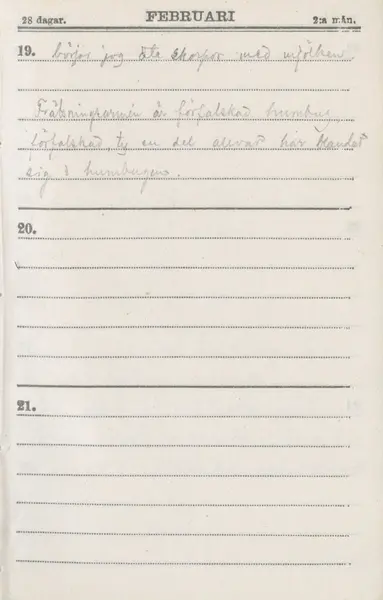 28 dagar. FEBRUARI 2:a mån.
19. börjar jag äta skorpor med mjölken.
Frälsningsarmén är förfalskad humbug,
förfalskad, ty en del allvar har blandat
sig i humbugen.
20.
21.